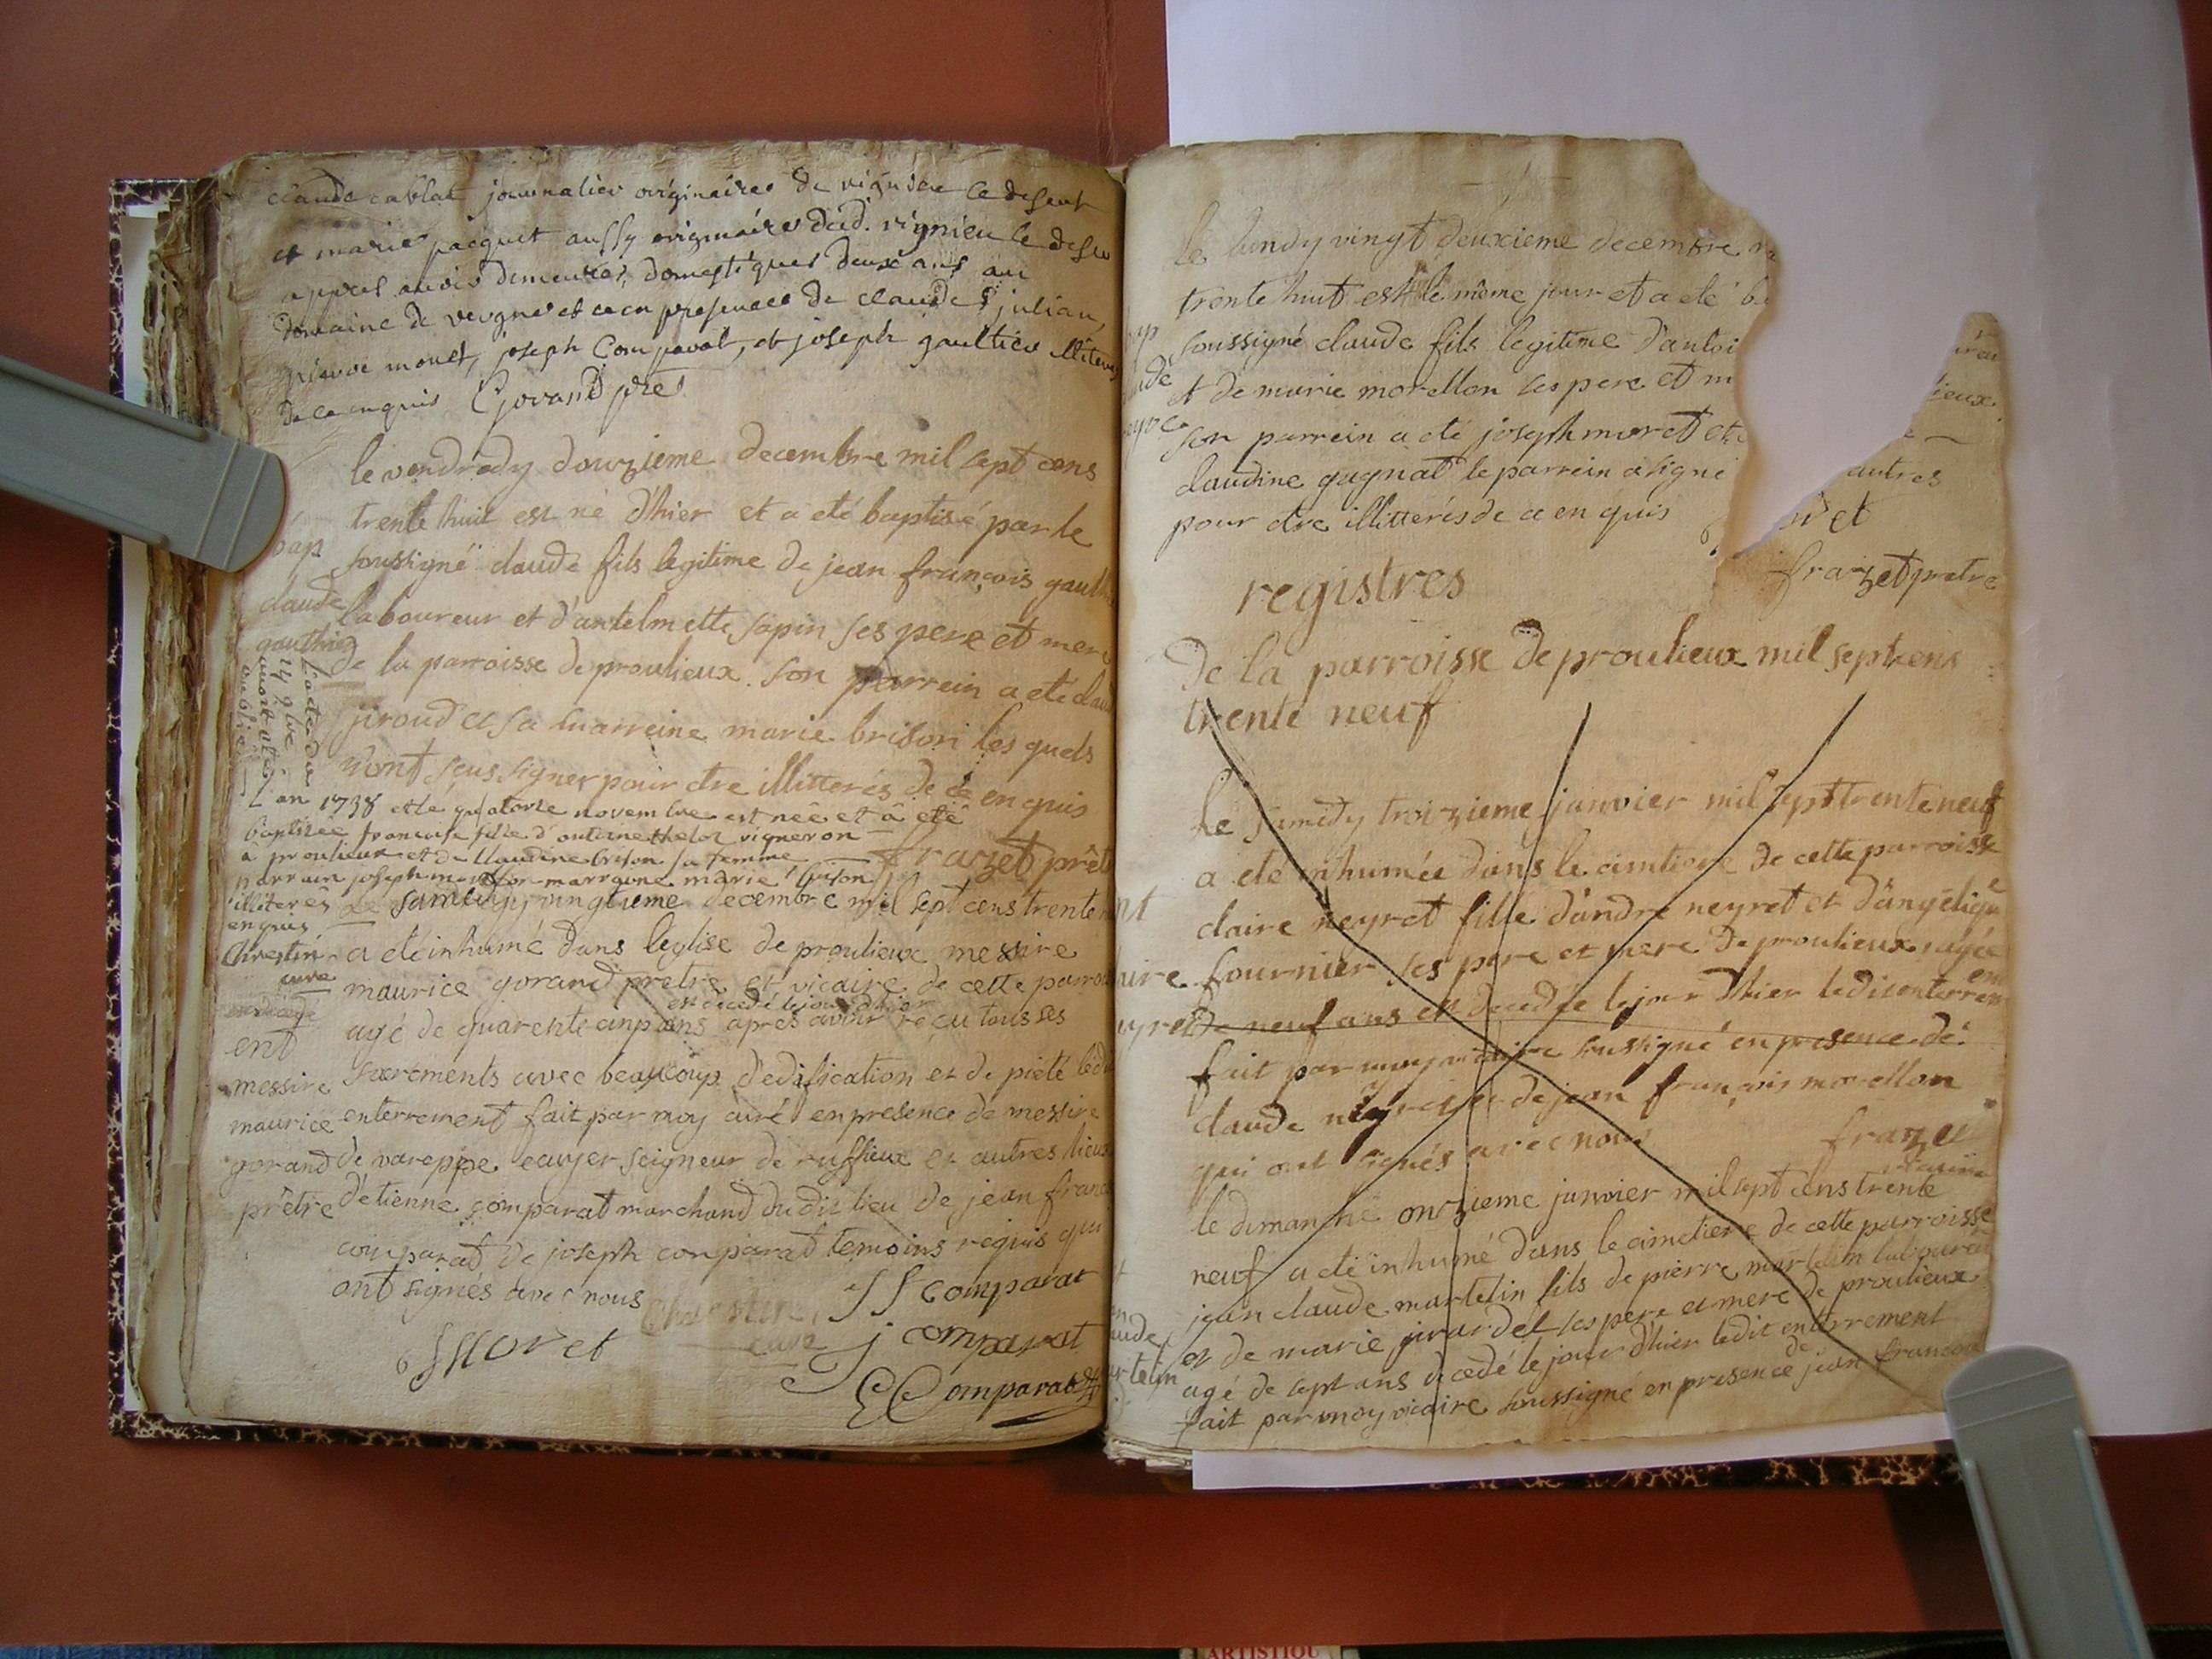 claude cablat journalier originaires de rignieu le desert
et marie pacquet aussy originaires dud. rignieu le deser
appres avoir demeures domestiques deux ans au
domaine de vergnes et ce en presence de claude s julian,
pierre moret, joseph Comparat, et joseph gaultier illiteres
de ce enquis Gorand ptre
le vendredy douzieme decembre mil sept cens
trente huit est né d'hier et a eté baptisé par le
soussigné claude fils legitime de jean françois gaulti
laboureur et d'antelmette sapin ses pere et mere
de la parroisse de proulieux. son parrein a eté clau
jiroud et sa marreine marie brison les quels
n'ont sçus signer pour etre illitterés de ce enquis
frazet prêt
bap
claude
gauthier
L'acte du
14 9bre
avoit eté
oublié
L'an 1738 et le quatorze novembre est née et â été
baptisée francoise fille d'antoine thelot vigneron
â proulieux et de Claudine brison sa femme
parrain joseph marraine marie brison
illiterés
enquis
Chrestin
cure
le samedy vingtieme decembre mil sept cens trente
a eté inhumé dans l'eglise de proulieux messire
maurice gorand prêtre et vicaire de cette parroi
est decedé le jour d'hier
agé de quarente cinq ans apres avoir reçu tous ses
sacrements avec beaucoup d'edification et de pieté ledi
enterrement fait par moy curé en presence de messire
de vareppe ecuyer seigneur de ruffieux et autres lieux
d'etienne comparat marchand dudit lieu de jean franc
comparat de joseph comparat temoins requis qui
ont signés avec nous
ent
messire
maurice
gorand
prêtre
Chrestin
curé
J f comparat
j Moret
j comparat
E Comparat
le lundy vingt deuxieme decembre
trente huit est le même jour et a eté b
soussigné claude fils legitime d'antoi
et de marie morellon ses pere et m
son parrein a eté joseph moret et
claudine gugnat le parrein a signé
pour etre illitterés de ce enquis
ieux
autres
frazet pretre
registres
de la parroisse de proulieux mil sept cens
trente neuf
le samedy troizieme janvier mil sept trente neuf
a eté inhumée dans le cimtiere de cette parroisse
claire neyret fille d'andre neyret et d'angélique
fournier ses pere et mere de proulieux agée
de neuf ans et decedée le jour d'hier ledit enterrem
fait par moy vicaire soussigné en presence de
claude neyret et de jean françois morellon
qui ont signés avec nous
frazet
vicaire
le dimanche onzieme janvier mil sept cens trente
neuf a eté inhumé dans le cimetiere de cette parroisse
jean claude martelin fils de pierre martelin laboureur
et de marie jirardet ses pere et mere de proulieux
agé de sept ans decedé le jour d'hier ledit enterrement
fait par moy vicaire soussigné en presence de jean francois